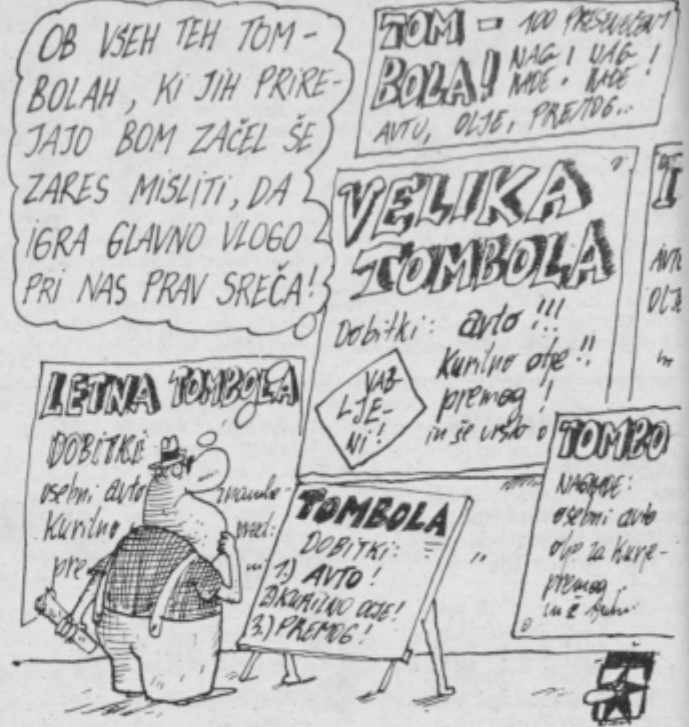 OB VSEH TEH TOM-
BOLAH, KI JIH PRIRE-
JAJO BOM ZAČEL ŠE
ZARES MISLITI, DA
IGRA GLAVNO VLOGO
PRI NAS PRAV SREČA!
TOM - 100
BOLA! NAG! NAG!
RADE. RADE
AVTU, OLJE, PREMOG..
VELIKA
TOMBOLA
Dobitki: avto!!!
Kurilno olje!!
premog!
in še vrsto
VAB-
LJE-
NI!
LETNA TOMBOLA
DOBITKI:
osebni avto
Kurilno
pre
TOMBOLA
DOBITKI:
1.) AVTO!
2) KURILNO OLJE!
3.) PREMOG!
TOMBO
NAGRADE:
osebni avto
olje za kurje-
premog
in
T
AVTO
OLJE